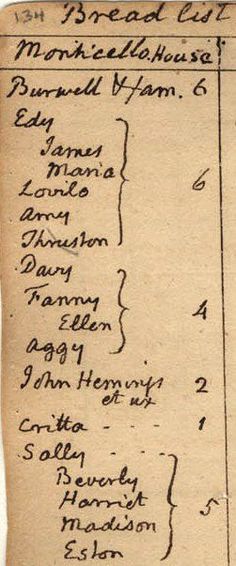 134 Bread list
Monticello. House
Burwell & fam. 6
Edy
James
Maria
Lovilo
Amy
Thruston
6
Davy
Fanny
Ellen
Aggy
4
John Hemings
et ux
2
Critta - - - 1
Sally - - -
Beverly
Harriet
Madison
Eston
5